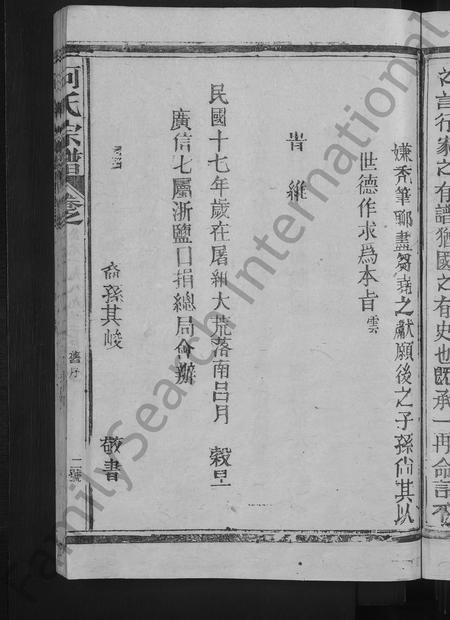 之言行家之有譜猶國之有史也既承一再命言不
嫌禿筆聊盡芻蕘之獻願後之子孫尙其以
世德作求爲本旨雲
旹維
民國十七年歲在屠維大荒落南呂月 榖旦
廣信七屬浙鹽口捐總局會辦
裔孫其峻 敬書
何氏宗譜 卷之
舊序
二號
FamilySearch International